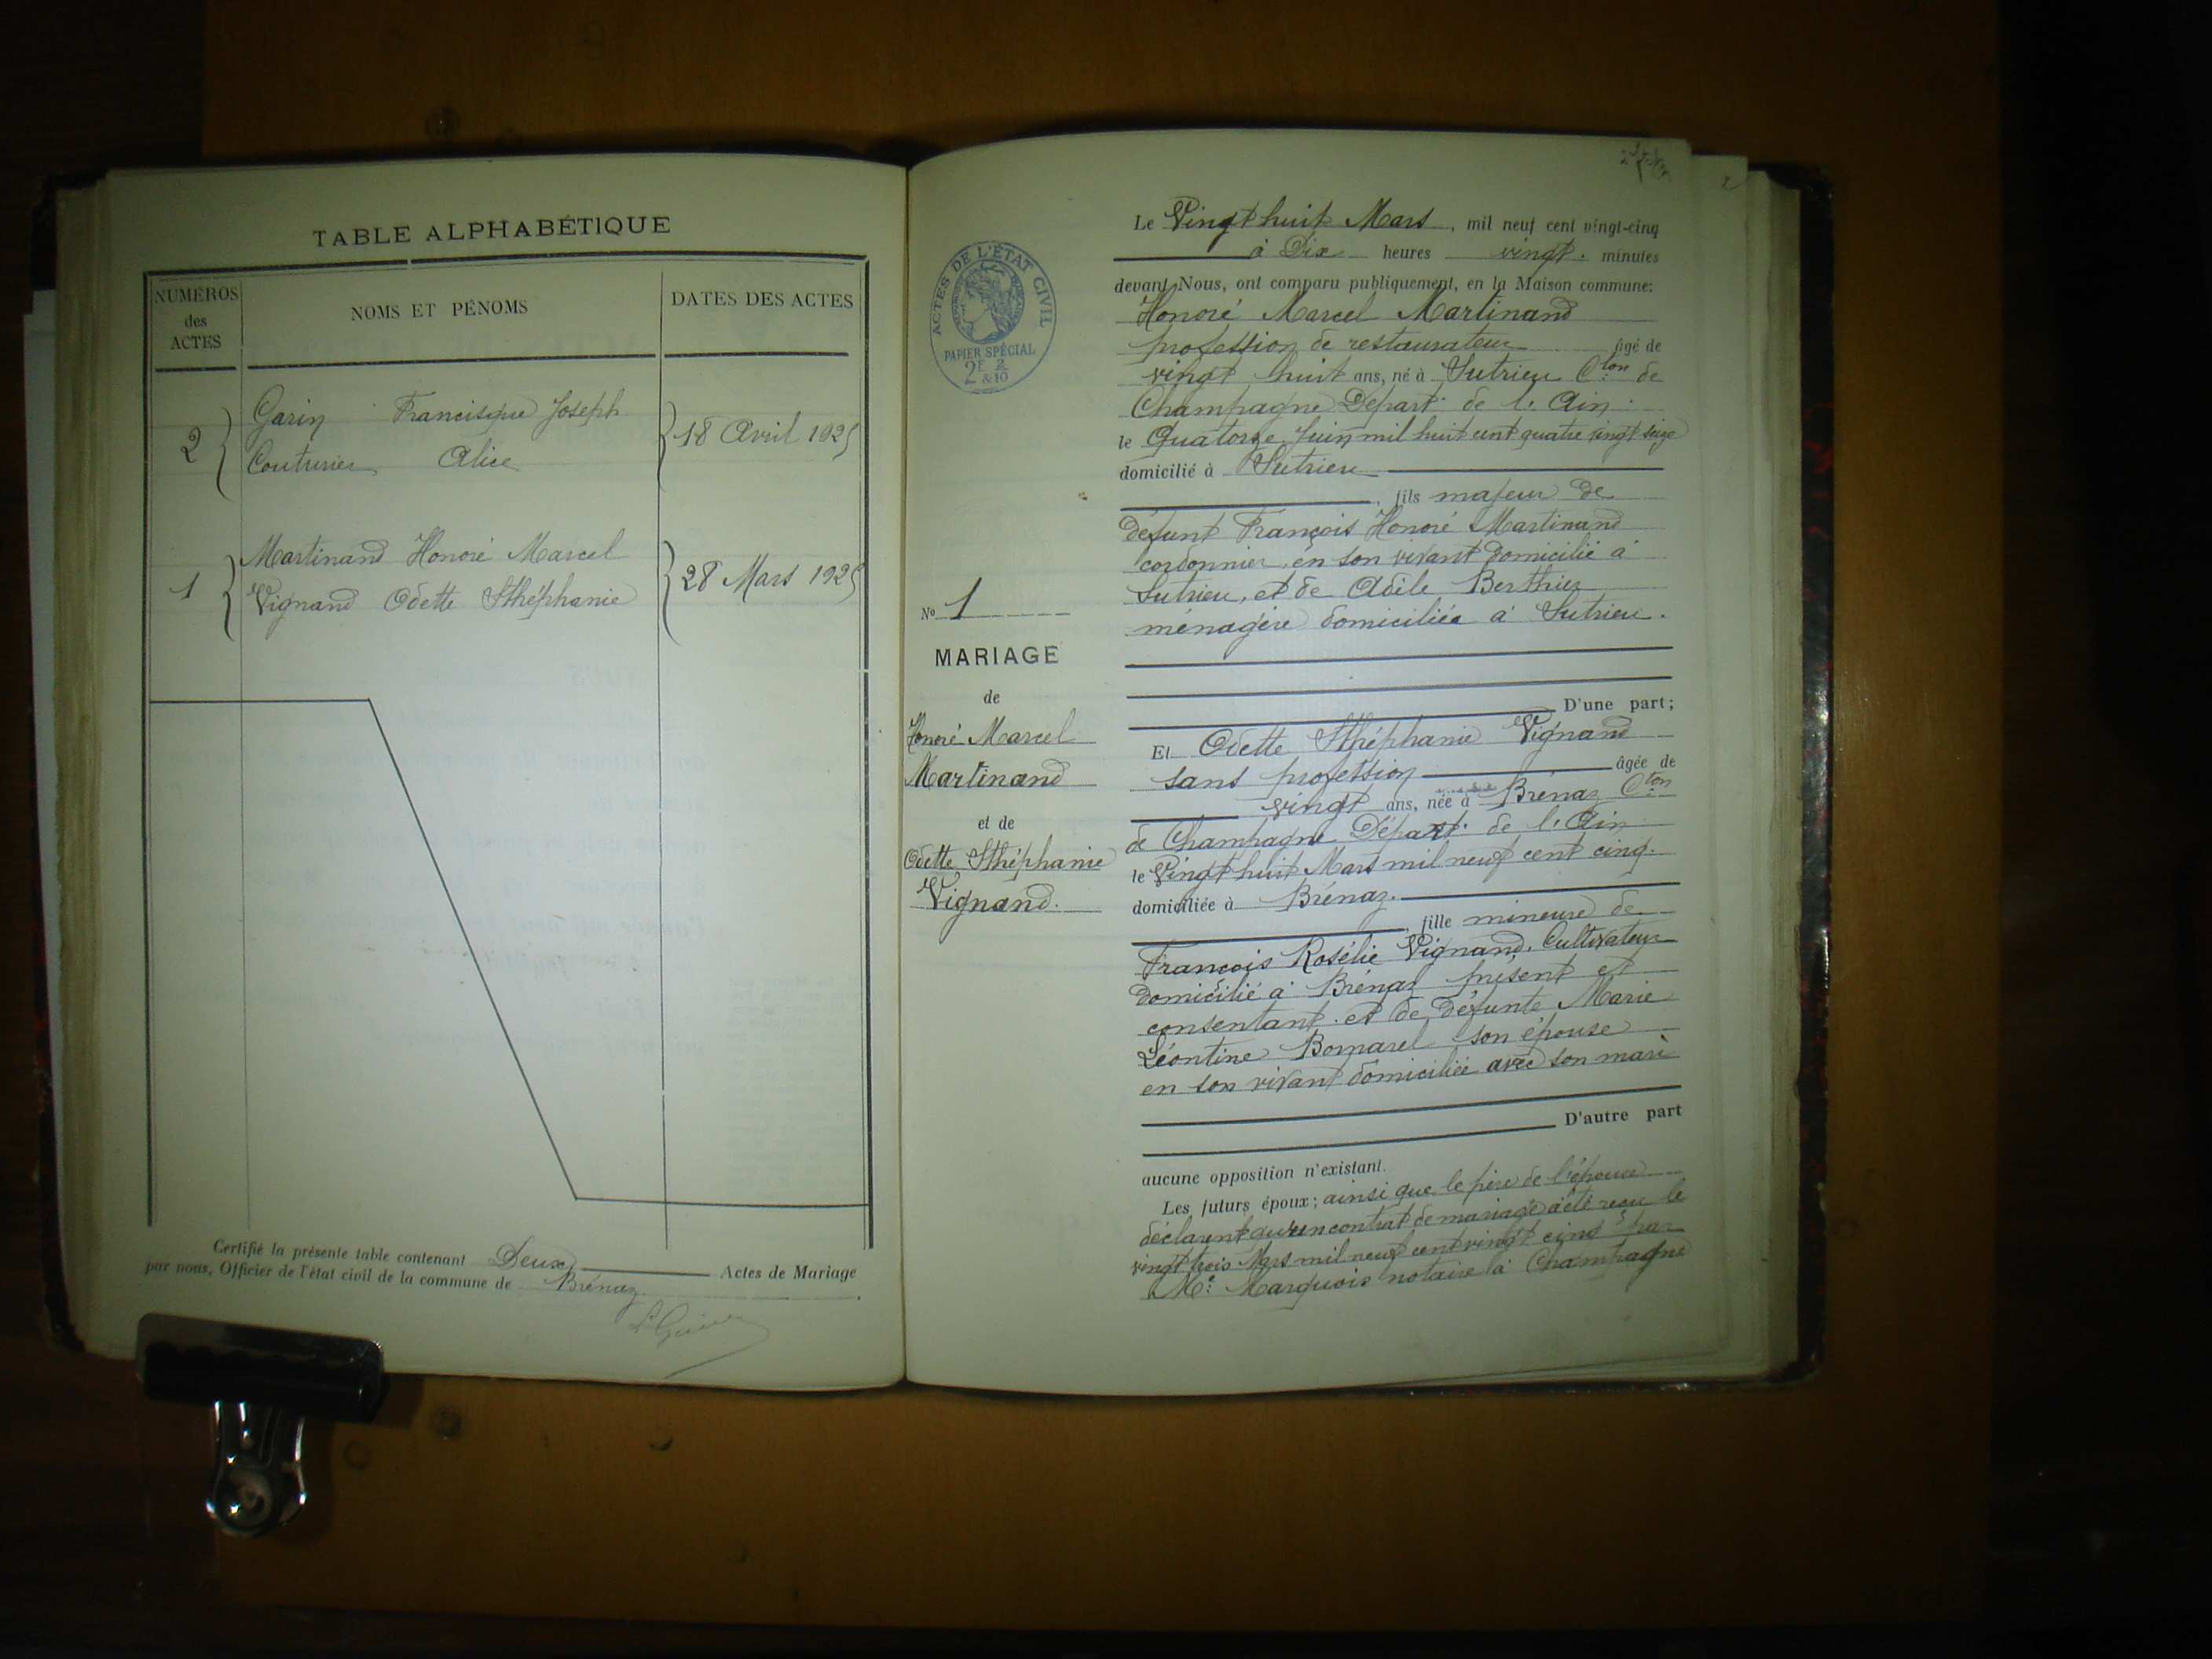 TABLE ALPHABÉTIQUE
NUMÉROS
des
ACTES
NOMS ET PÉNOMS
DATES DES ACTES
2
Garin Francisque Joseph
Couturier Alice
18 Avril 1925
1
Martinand Honoré Marcel
Vignand Odette Sthéphanie
28 Mars 1925
Certifié la présente table contenant Deux Actes de Mariage
par nous, Officier de l'état civil de la commune de Brénaz
ACTES DE L'ÉTAT CIVIL
PAPIER SPÉCIAL
2F 2
&10
No 1
MARIAGE
de
Honoré Marcel
Martinand
et de
Odette Sthéphanie
Vignand.
Le Vingt huit Mars, mil neuf cent vingt-cinq
à Dix heures vingt. minutes
devant Nous, ont comparu publiquement, en la Maison commune:
Honoré Marcel Martinand
profession de restaurateur âgé de
vingt huit ans, né à Sutrieu Cton de
Champagne Départ. de l'Ain
le Quatorze Juin mil huit cent quatre vingt seize
domicilié à Sutrieu
, fils majeur de
défunt François Honoré Martinand
cordonnier, en son vivant domicilié à
Sutrieu, et de Adèle Berthier
ménagère domiciliée à Sutrieu.
D'une part;
Et Odette Sthéphanie Vignand
sans profession âgée de
vingt ans, née à Brénaz Cton
de Champagne Départ. de l'Ain
le Vingt huit Mars mil neuf cent cinq.
domiciliée à Brénaz.
, fille mineure de
François Rosélie Vignand, Cultivateur
domicilié à Brénaz présent et
consentant et de défunte Marie
Léontine Bornarel son épouse
en son vivant domiciliée avec son mari
D'autre part
aucune opposition n'existant.
Les futurs époux; ainsi que le père de l'épouse
déclarent qu'un contrat de mariage a été reçu le
vingt trois Mars mil neuf cent vingt cinq par
Me Marquois notaire à Champagne